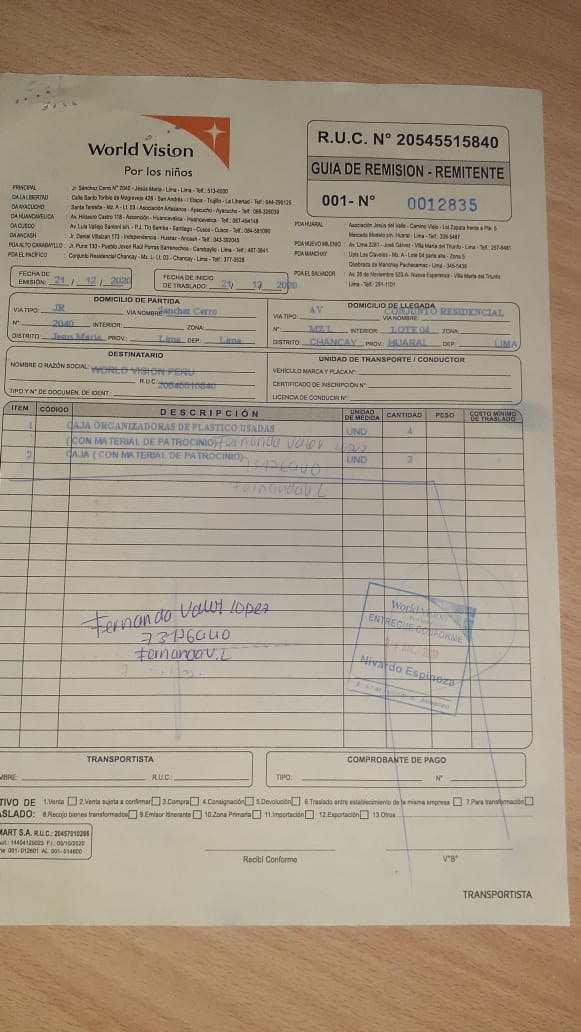 World Vision
Por los niños
R.U.C. N° 20545515840
GUIA DE REMISION - REMITENTE
001- N° 0012835
PRINCIPAL : Jr. Sánchez Cerro N° 2040 - Jesús María - Lima - Lima - Telf.: 513-6000
OA LA LIBERTAD : Calle Santo Toribio de Mogrovejo 426 - San Andrés - I Etapa - Trujillo - La Libertad - Telf: 044-290125
OA AYACUCHO : Santa Teresita - Mz. A - Lt. 03 - Asociación Artesanos - Ayacucho - Ayacucho - Telf.: 066-326039
OA HUANCAVELICA : Av. Hildauro Castro 118 - Ascensión - Huancavelica - Huancavelica - Telf.: 067-454148
OA CUSCO : Av. Luis Vallejo Santoni s/n - P.J. Tío Bamba - Santiago - Cusco - Cusco - Telf.: 084-581090
OA ANCASH : Jr. Daniel Villaizan 173 - Independencia - Huaraz - Ancash - Telf.: 043-392045
PDA ALTO CARABAYLLO : Jr. Puno 130 - Pueblo Joven Raúl Porras Barrenechea - Carabayllo - Lima - Telf.: 407-3641
PDA EL PACÍFICO : Conjunto Residencial Chancay - Mz. L- Lt. 03 - Chancay - Lima - Telf.: 377-3528
PDA HUARAL : Asociación Jesús del Valle - Camino Viejo - Lot Zapata frente a Pte. 5
Mercado Modelo s/n. Huaral - Lima - Telf.: 335-5487
PDA NUEVO MILENIO : Av. Lima 2261 - José Gálvez - Villa María del Triunfo - Lima - Telf: 257-8481
PDA MANCHAY : Upis Los Claveles - Mz. A - Lote 04 parte alta - Zona 5
Quebrada de Manchay Pachacamac - Lima - 345-5438
PDA EL SALVADOR : Av. 26 de Noviembre 520-A- Nueva Esperanza - Villa María del Triunfo
Lima - Telf.: 291-1101
FECHA DE EMISIÓN: 21 / 12 / 2020
FECHA DE INICIO DE TRASLADO: 21/ 12 / 2020
DOMICILIO DE PARTIDA
VIA TIPO: JR VIA NOMBRE: Sanchez Cerro
N°: 2040 INTERIOR: ZONA:
DISTRITO: Jesus Maria PROV.: Lima DEP.: Lima
DOMICILIO DE LLEGADA
VIA TIPO: AV VIA NOMBRE: CONJUNTO RESIDENCIAL
N°: MZ L INTERIOR: LOTE 04 ZONA:
DISTRITO: CHANCAY PROV.: HUARAL DEP: LIMA
DESTINATARIO
NOMBRE O RAZÓN SOCIAL: WORLD VISION PERU
R.U.C.: 20545515840
TIPO Y N° DE DOCUMEN. DE IDENT:
UNIDAD DE TRANSPORTE / CONDUCTOR
VEHÍCULO MARCA Y PLACA N°:
CERTIFICADO DE INSCRIPCIÓN N°:
LICENCIA DE CONDUCIR N°:
ITEM CÓDIGO DESCRIPCIÓN UNIDAD DE MEDIDA CANTIDAD PESO COSTO MÍNIMO DE TRASLADO
1 CAJA ORGANIZADORAS DE PLASTICO USADAS UND 4
(CON MATERIAL DE PATROCINIO) Fernanda Valer Lopez
2 CAJA ( CON MATERIAL DE PATROCINIO) UND 3
FernandaV.L
Fernanda Valer Lopez
FernandaV.L
World Vision
ENTREGUE CONFORME
Nivardo Espinoza
TRANSPORTISTA
MBRE: R.U.C.:
COMPROBANTE DE PAGO
TIPO: N°
TIVO DE 1.Venta 2.Venta sujeta a confirmar 3.Compra 4.Consignación 5.Devolución 6.Traslado entre establecimiento de la misma empresa 7.Para transformación
ASLADO: 8.Recojo bienes transformados 9.Emisor Itinerante 10.Zona Primaria 11.Importación 12.Exportación 13.Otros
MART S.A. R.U.C.: 20457010266
ut.: 14404125023 F.I.: 09/10/2020
ie 001- 012601 AL 001-014600
Recibí Conforme
V°B°
TRANSPORTISTA